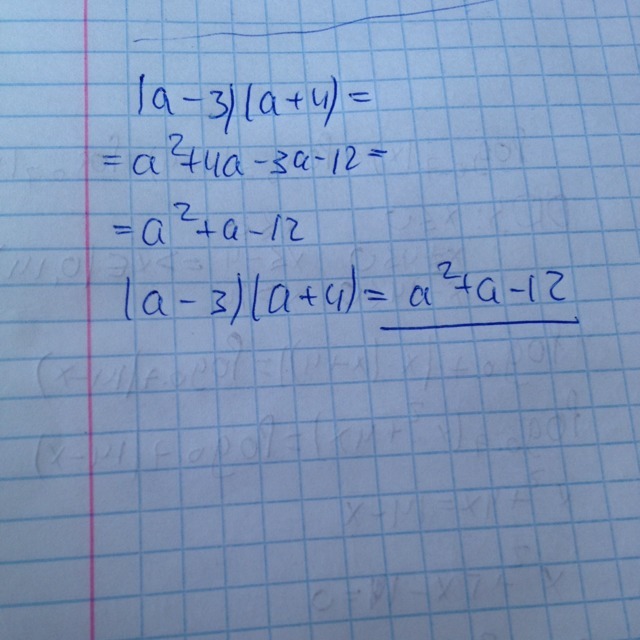 (a-3)(a+4)=
=a²+4a-3a-12=
=a²+a-12
(a-3)(a+4)= a²+a-12